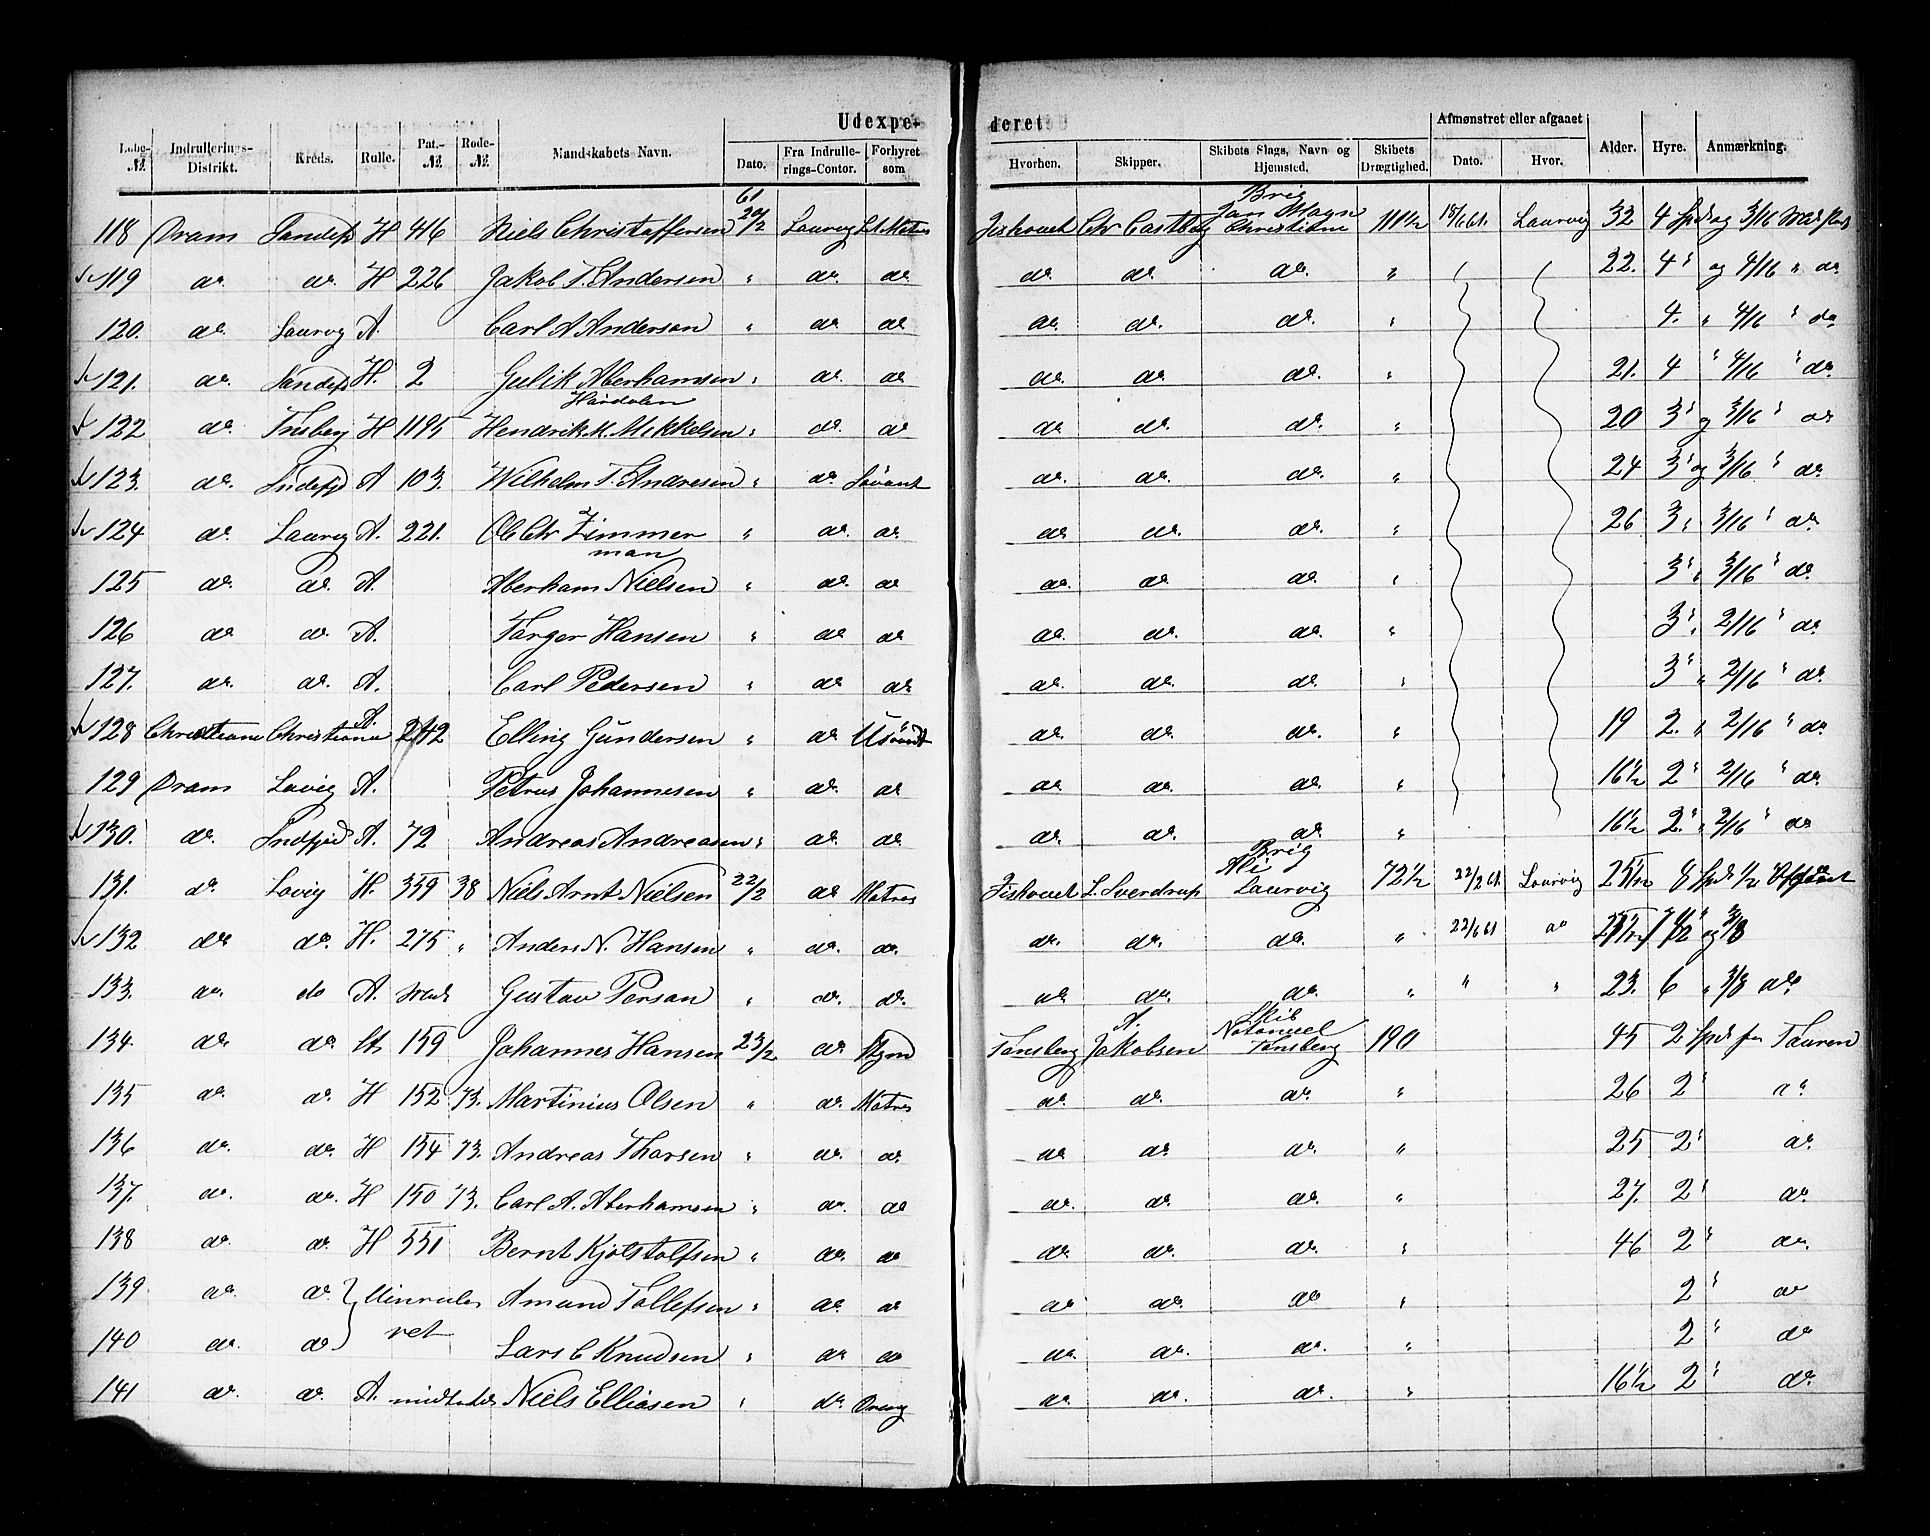 Udexpe- deret
Løbe-№. Indrullerings-Distrikt. Kreds. Rulle. Pat.-№. Rode-№. Mandskabets Navn. Dato. Fra Indrullerings-Contor. Forhyret som Hvorhen. Skipper. Skibets Slags, Navn og Hjemsted. Skibets Drægtighed. Afmønstret eller afgaaet Dato. Hvor. Alder. Hyre. Anmærkning.
118 Dram H 416 Niels Christoffersen 61 20/2 Laurvig Chr Castberg Brig Christiane 111 1/2 18/6 61. Laurvig 32 4 Spd og 3/16
119 do do. H 226 Jakob T. Andersen " do. do do. do. do. " 22. 4 " og 4/16 " do
120. do. Laurvig A. Carl A Anderson " do do do. do. do. " 4. " 4/16 " do
121. do. H. 2 Gulik Aberhamsen " do. do do. do. do. " 21. 4 " 4/16 " do.
122 do. H 1195 Hendrik K. Mikkelsen " do. do do. do. do. " 20 3 " og 3/16 " do
123. do. A 103. Wilhelm T. Andresen " do do. do. do. " 24 3 " og 3/16 " do.
124 do. Laurvig A. 221. Ol Chr Zimmerman " do. do do. do. do. " 26 3 " 3/16 " do.
125 do. do. A. Aberham Nielsen " do. do do. do. do. " 3 " 3/16 " do.
126 do do. A. Torger Hansen " do. do do. do. do. " 3 " 2/16 " do.
127. do. do. A. Carl Pedersen " do do do. do. do. " 3 " 2/16 " do.
128 Christiane Christiania A. 242 Elling Gundersen " do do. do. do. " 19 2. " 2/16 " do.
129 Dram A. Petrus Johannesen " do. do do. do. do. " 16 1/2 2 " 2/16 " do
130. do. A. 72 Andreas Andreasen " do. do do. do. do. " 16 1/2 2. " 2/16 " do
131. do. H. 359 38 Niels Arnt Nielsen 22/2 do Matros L. Sverdrup Brig Ali Laurvig 72 1/2 22/2 61. Laurvig 8 Spd
132 do do. H. 275 " Anders N. Hansen " do. do. do. do. do. " 22/6 61 do og 3/8
133. do. do A. Gustav Person " do. do. do. do. do. " " " 23. 6 " 3/8 do
134. do. do. 159 Johannes Hansen 23/2 do Tønsberg A. Jakobsen Skib Natanael Tønsberg 190 45 2 Spd Touren
135 do. do. H 152 73. Martinius Olsen " do. Matros do. do. do. " 26 2 " do.
136 do. do. H 154 73. Andreas Thorsen " do. do. do. do. do. " 25 2 " do.
137. do. do. H 150 73. Carl A. Aberhamsen " do. do do. do. do. " 27. 2 " do.
138 do. do. H 551 Bernt Kjølstolfsen " do. do do. do. do. " 46 2 " do.
139 do. do. Uinrulleret Amund Tollefsen " do. do do do. do " 2 " do
140 do. do Lars C Knudsen " do do do. do. do. " 2 " do
141 do. do. A. Niels Elliasen " do. Dreng do. do. do. " 16 1/2 2 " do.